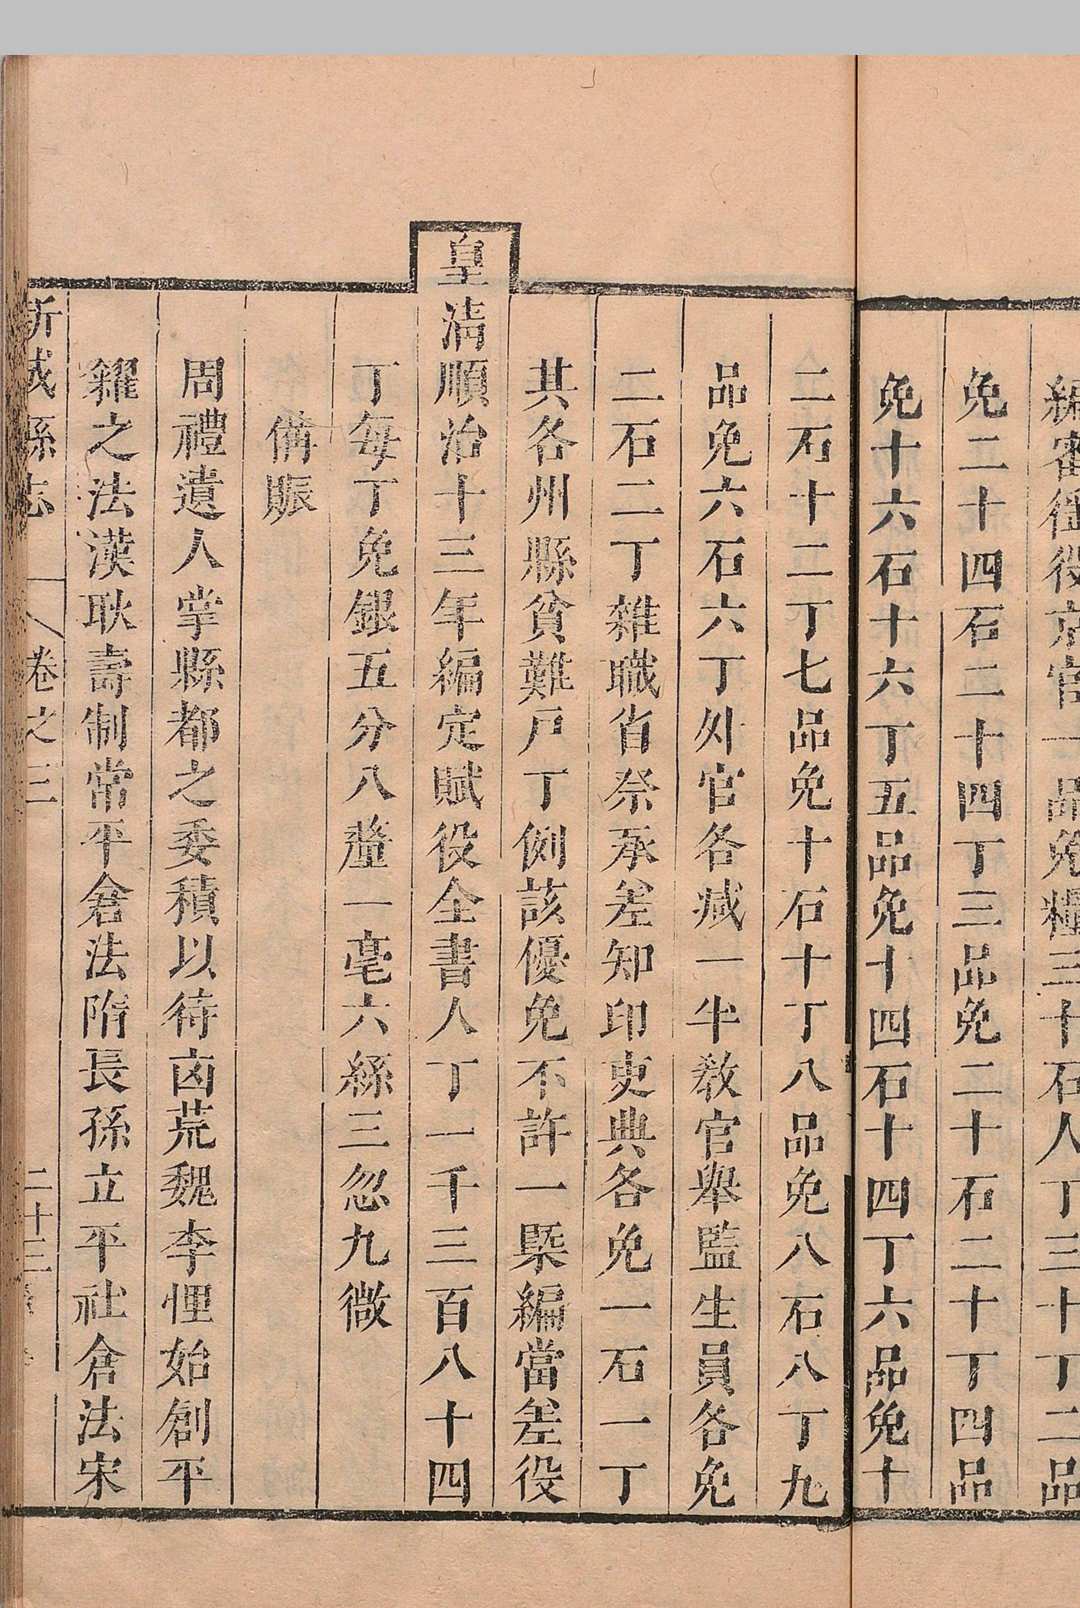 編審徭役京官一品免糧三十石人丁三十丁二品
免二十四石二十四丁三品免二十石二十丁四品
免十六石十六丁五品免十四石十四丁六品免十
二石十二丁七品免十石十丁八品免八石八丁九
品免六石六丁外官各减一半教官舉監生員各免
二石二丁雜職省祭承差知印吏典各免一石一丁
其各州縣貧難戶丁例該優免不許一槩編當差役
皇清順治十三年編定賦役全書人丁一千三百八十四
丁每丁免銀五分八釐一毫六絲三忽九微
備賑
周禮遺人掌縣都之委積以待凶荒魏李悝始創平
糴之法漢耿壽制常平倉法隋長孫立平社倉法宋
新城縣志 卷之三 二十三